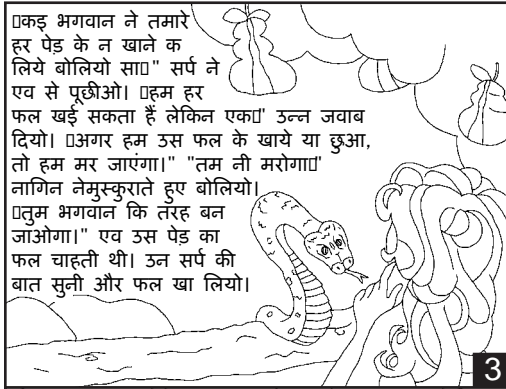 ▯कइ भगवान ने तमारे
हर पेड़ के न खाने क
लिये बोलियो सा▯" सर्प ने
एव से पूछीओ। ▯हम हर
फल खई सकता हैं लेकिन एक▯" उन्न जवाब
दियो। ▯अगर हम उस फल के खाये या छुआ,
तो हम मर जाएंगा।" "तम नी मरोगा▯"
नागिन नेमुस्कुराते हुए बोलियो।
▯तुम भगवान कि तरह बन
जाओगा।" एव उस पेड़ का
फल चाहती थी। उन सर्प की
बात सुनी और फल खा लियो।
3